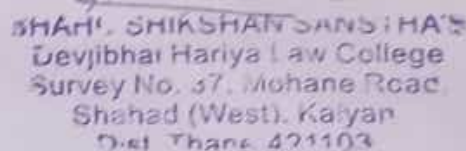 SHAHA. SHIKSHAN SANSTHA'S
Devjibhai Hariya Law College
Survey No. 37, Mohane Road,
Shahad (West), Kalyan
Dist. Thane 421103